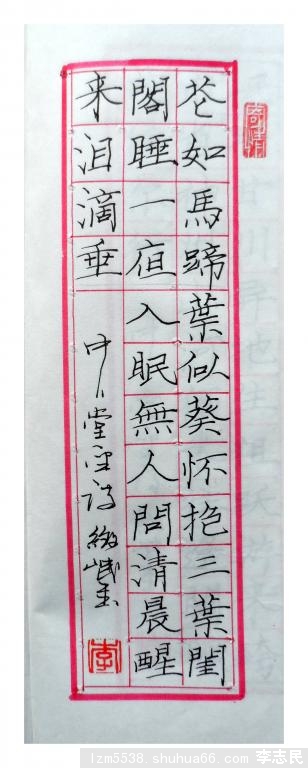 花如馬蹄葉似葵怀抱三葉閨
閣睡一亱入眠無人問清晨醒
来泪滴垂
李
lzm5538.shuhua66.com 李志民